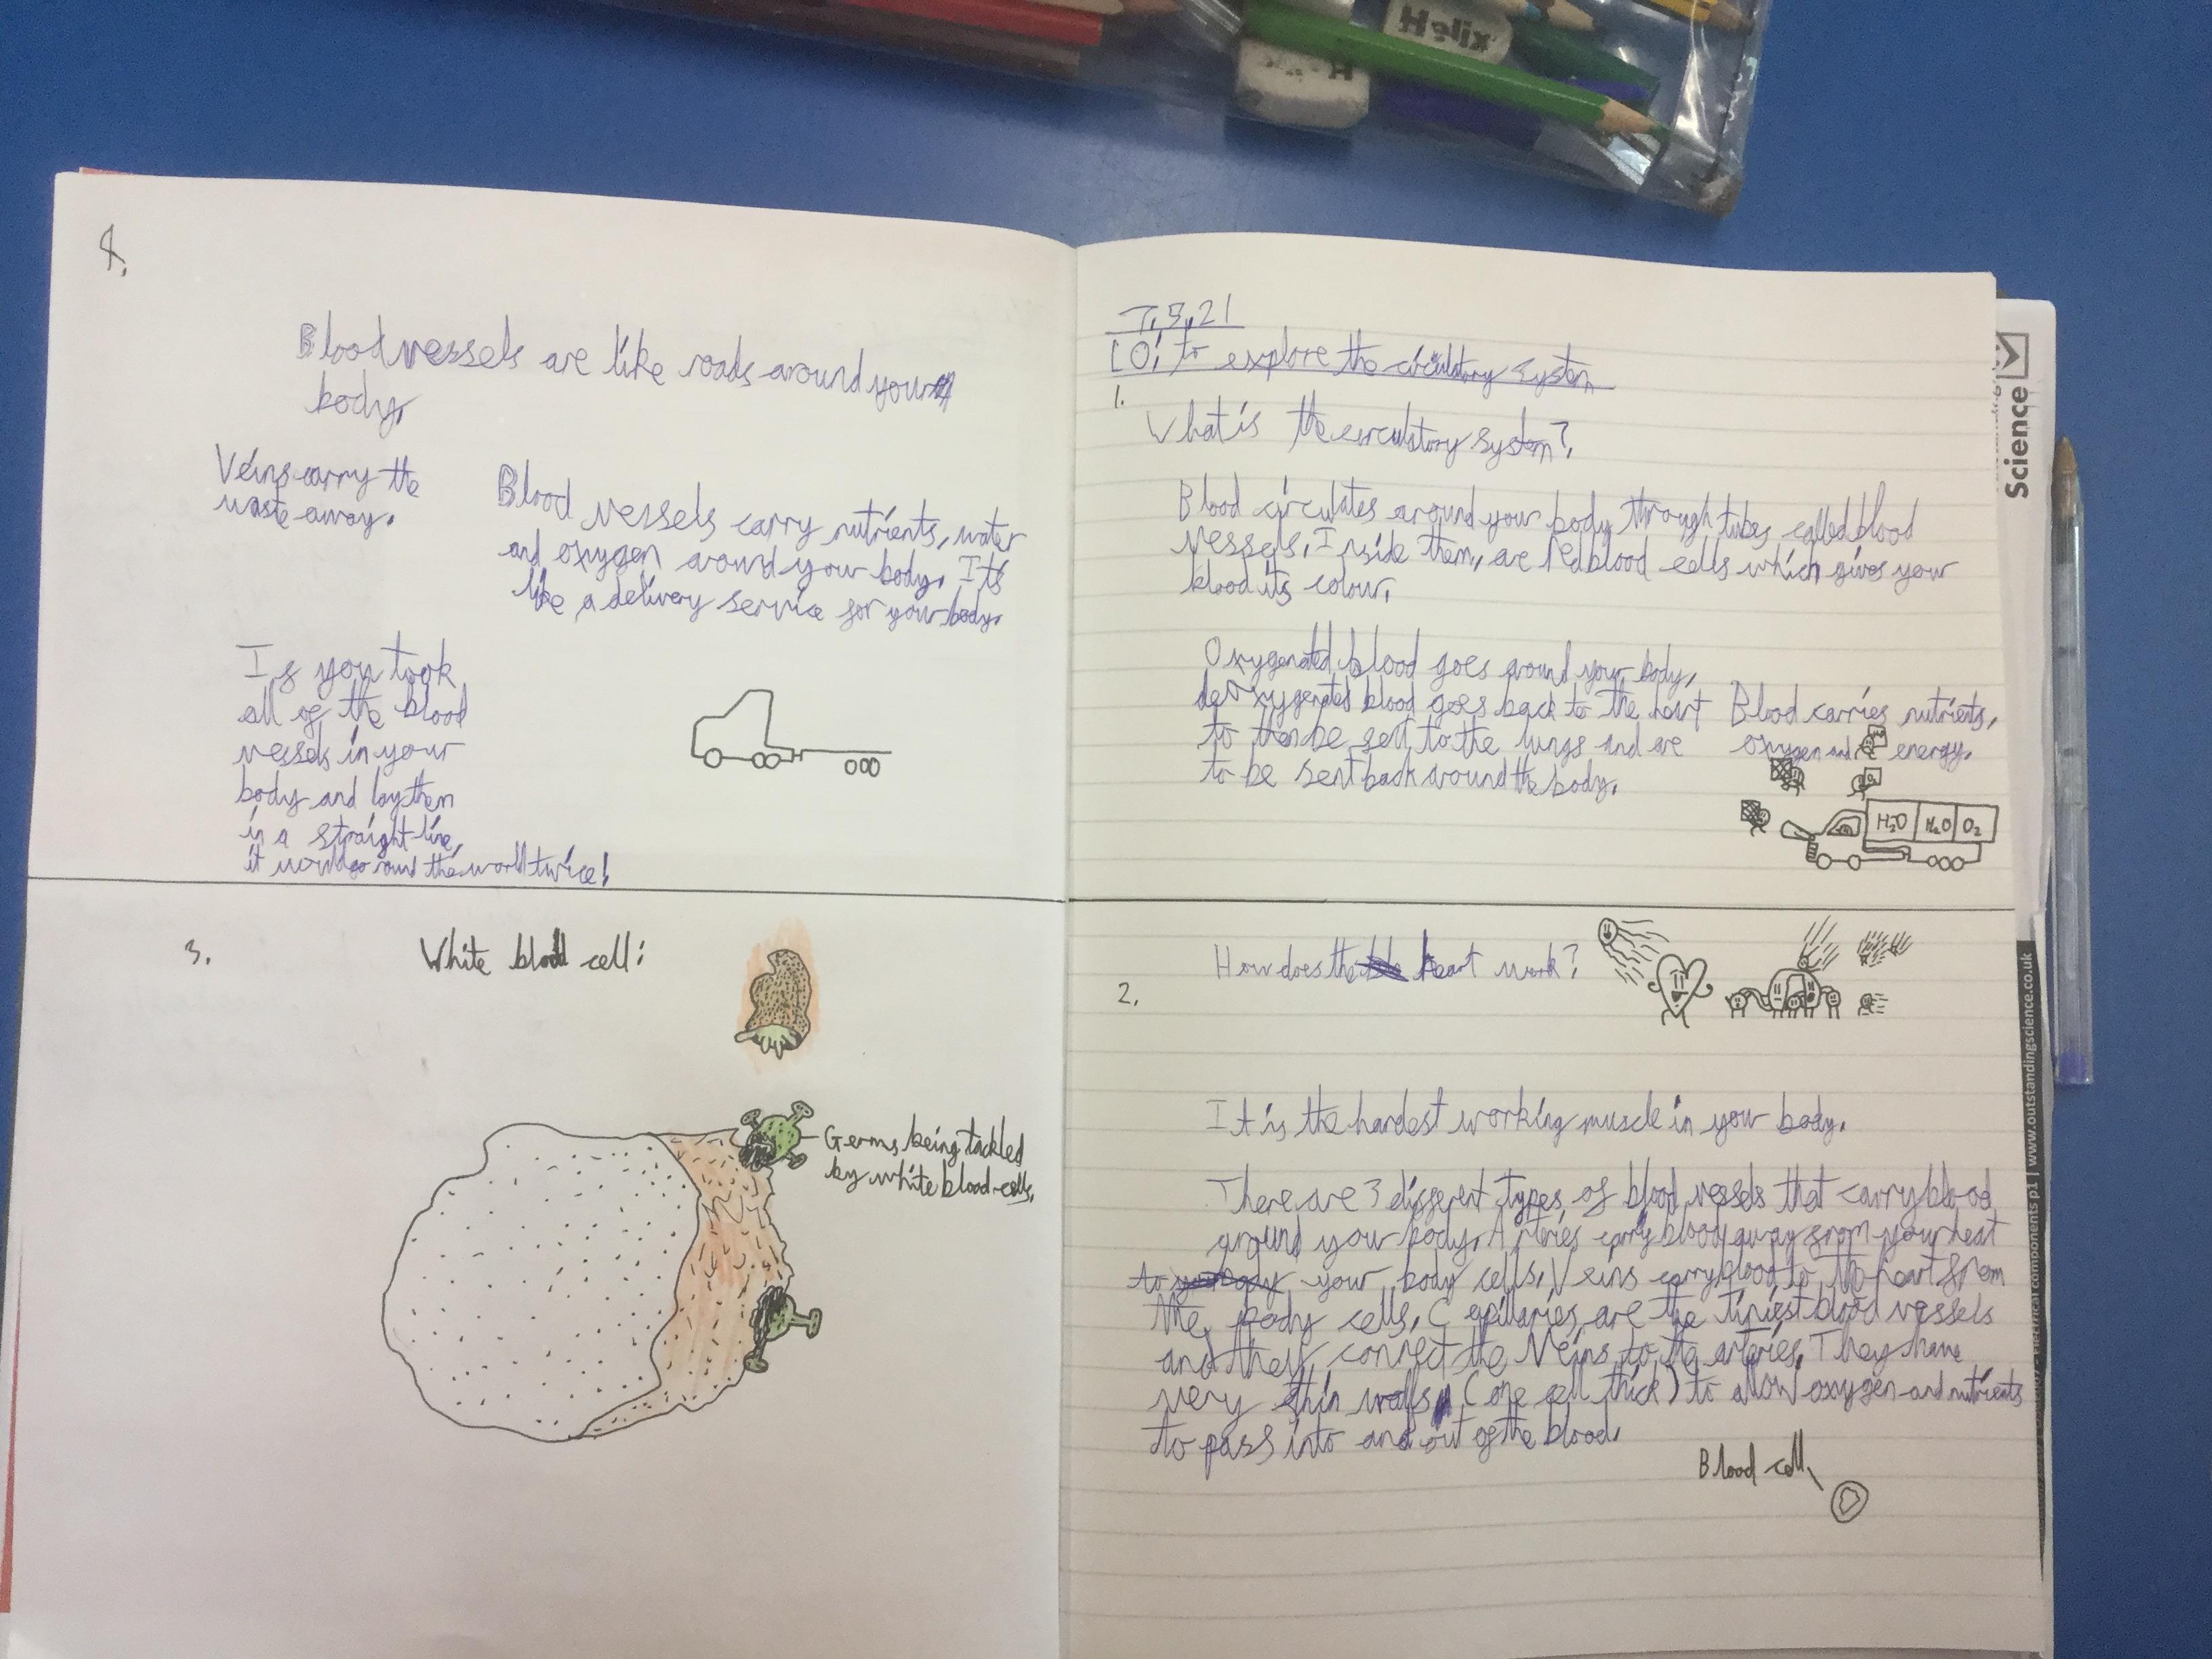 Helix
H
8.
Blood vessels are like roads around your
body.
Veins carry the
waste away.
Blood vessels carry nutrients, water
and oxygen around your body. It's
like a delivery service for your body.
If you took
all of the blood
vessels in your
body and lay them
in a straight line,
it would go round the world twice!
3.
White blood cell:
Germs being tackled
by white blood cells.
7.5.21
LO: to explore the circulatory system
1.
What is the circulatory system?
Blood circulates around your body through tubes called blood
vessels. Inside them, are Red blood cells which gives your
blood its colour.
Oxygenated blood goes around your body,
deoxygenated blood goes back to the heart
to then be sent to the lungs and are
to be sent back around the body.
Blood carries nutrients,
oxygen and energy.
H2O H2O O2
2.
How does the heart work?
It is the hardest working muscle in your body.
There are 3 different types of blood vessels that carry blood
around your body. Arteries carry blood away from your heat
to your body cells. Veins carry blood to the heart from
the body cells. Capillaries are the tiniest blood vessels
and they connect the Veins to the arteries. They have
very thin walls (one cell thick) to allow oxygen and nutrients
to pass into and out of the blood.
Blood cell
Science
components p1 | www.outstandingscience.co.uk